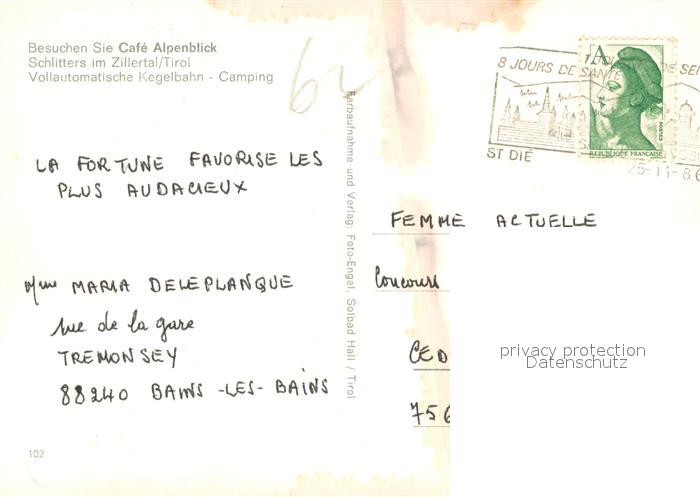 Besuchen Sie Café Alpenblick
Schlitters im Zillertal/Tirol
Vollautomatische Kegelbahn - Camping
62
LA FORTUNE FAVORISE LES
PLUS AUDACIEUX
Mme MARIA DELEPLANQUE
rue de la gare
TREMONSEY
88240 BAINS-LES-BAINS
102
Farbaufnahme und Verlag: Foto-Engel, Solbad Hall / Tirol
8 JOURS DE SANTE
ST DIÉ
25-11-86
A
POSTES
REPUBLIQUE FRANÇAISE
FEMME ACTUELLE
Concours
CED
756
privacy protection
Datenschutz